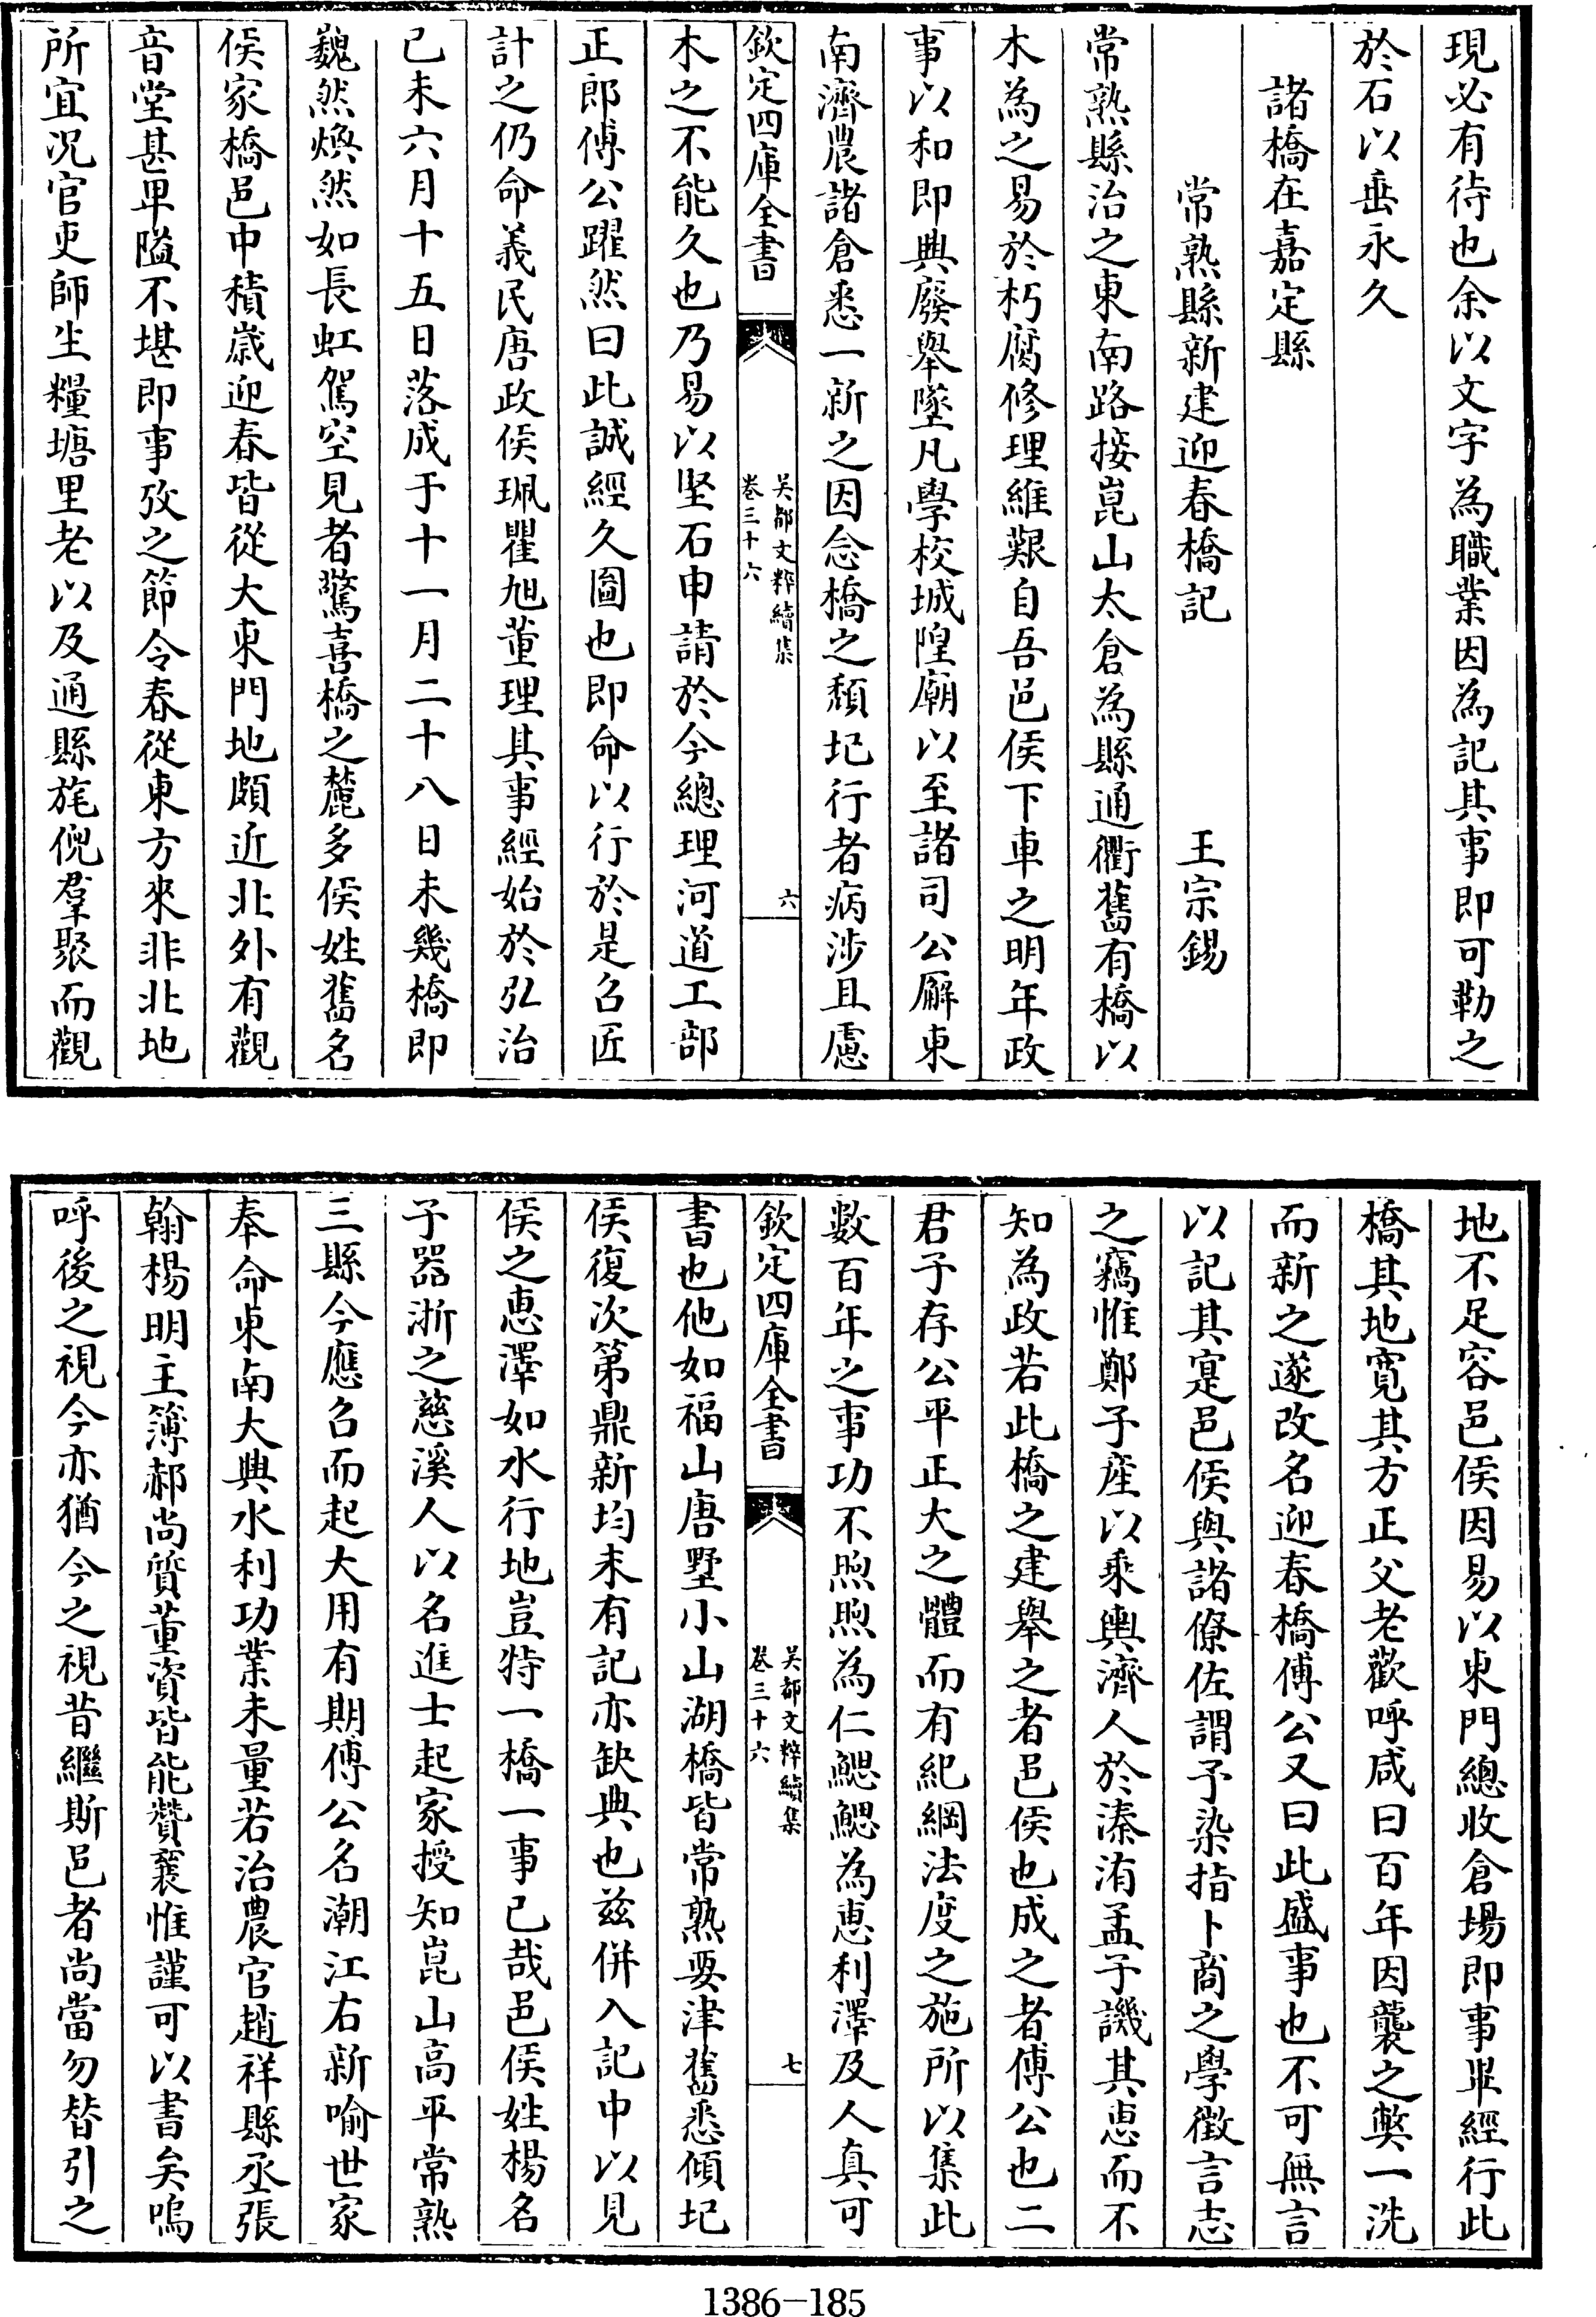 現必有待也余以文字為職業因為記其事即可勒之
於石以垂永久
諸橋在嘉定縣
常熟縣新建迎春橋記　王宗錫
常熟縣治之東南路接崑山太倉為縣通衢舊有橋以
木為之易於朽腐修理維艱自吾邑侯下車之明年政
事以和即典廢舉墜凡學校城隍廟以至諸司公廨東
南濟農諸倉悉一新之因念橋之頹圮行者病涉且慮
欽定四庫全書
吳都文粹續集
卷三十六
六
木之不能久也乃易以堅石申請於今總理河道工部
正郎傅公躍然曰此誠經久圖也即命以行於是召匠
計之仍命義民唐政侯珮瞿旭董理其事經始於弘治
己未六月十五日落成于十一月二十八日未幾橋即
巍然煥然如長虹駕空見者驚喜橋之麓多侯姓舊名
侯家橋邑中積歲迎春皆從大東門地頗近北外有觀
音堂甚卑隘不堪即事攷之節令春從東方來非北地
所宜況官吏師生糧塘里老以及通縣旄倪羣聚而觀
地不足容邑侯因易以東門總收倉場即事畢經行此
橋其地寬其方正父老歡呼咸曰百年因襲之獘一洗
而新之遂改名迎春橋傅公又曰此盛事也不可無言
以記其寔邑侯與諸僚佐謂予染指卜商之學徵言志
之竊惟鄭子產以乘輿濟人於溱洧孟子譏其惠而不
知為政若此橋之建舉之者邑侯也成之者傅公也二
君子存公平正大之體而有紀綱法度之施所以集此
數百年之事功不煦煦為仁鰓鰓為惠利澤及人真可
欽定四庫全書
吳都文粹續集
卷三十六
七
書也他如福山唐墅小山湖橋皆常熟要津舊悉傾圮
侯復次第鼎新均未有記亦缺典也茲併入記中以見
侯之惠澤如水行地豈特一橋一事已哉邑侯姓楊名
子器浙之慈溪人以名進士起家授知崑山高平常熟
三縣今應召而起大用有期傅公名潮江右新喻世家
奉命東南大興水利功業未量若治農官趙祥縣丞張
翰楊明主簿郝尚質董資皆能贊襄惟謹可以書矣嗚
呼後之視今亦猶今之視昔繼斯邑者尚當勿替引之
1386-185